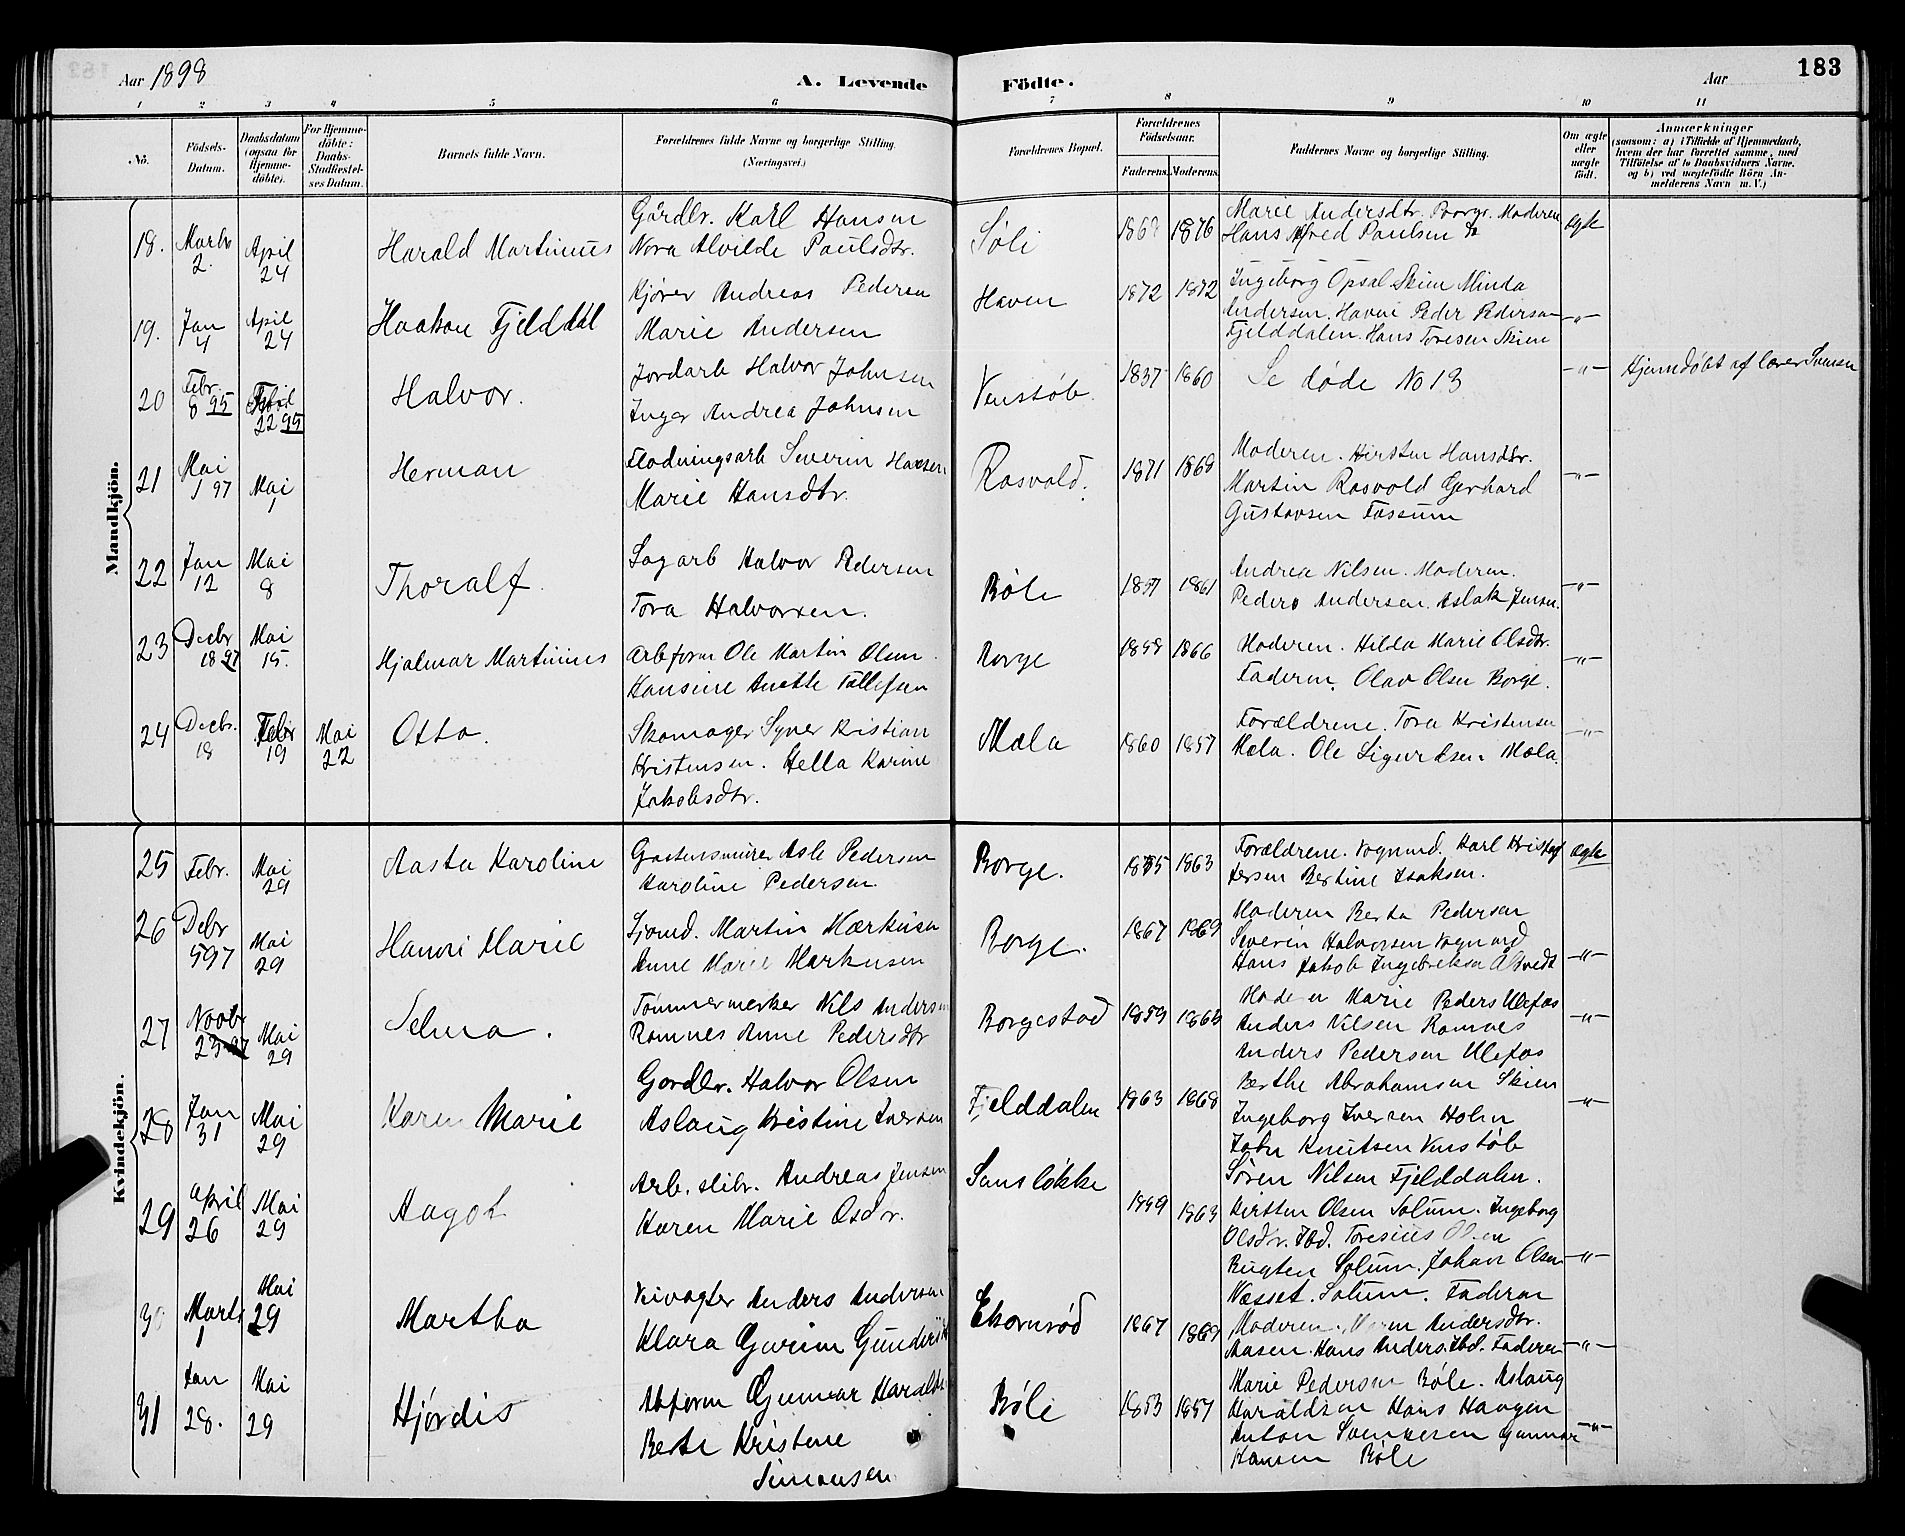 Aar 1898 A. Levende Födte. Aar 183
1 2 3 4 5 6 7 8 9 10 11
No. Födsels-Datum. Daabsdatum (ogsaa for Hjemme-döbte). For Hjemme-döbte: Daabs-Stadfæstel-ses Datum. Barnets fulde Navn. Forældrenes fulde Navne og borgerlige Stilling. (Næringsvei.) Forældrenes Bopæl. Forældrenes Födselsaar. Faderens. Moderens. Faddernes Navne og borgerlige Stilling. Om ægte eller uægte födt. Anmærkninger (saasom: a) i Tilfælde af Hjemmedaab, hvem der har forrettet samme, med Tilföielse af to Daabsvidners Navne, og b) ved uægtefödte Börn An-melderens Navn m. V.)
Mandkjön.
18. Marts 2. April 24 Harald Martinius Gårdbr. Karl Hansen Søli 1876 Marie Andersdtr. Borge. Moderen ægte
Nora Alvilde Paulsdtr. Hans Alfred Paulsen
19. Jan 4 April 24 Haakon Fjelddal Kjører Andreas Pedersen Haven 1872 1872 Ingeborg Opsal Skien Minda
Marie Andersen Andersen. Haven Peder Pedersen -"-
Fjelddalen. Hans Toresen Skien
20 Febr. 8 95 22 95 Halvor. Jordarb Halvor Johnsen Venstøb. 1837 1860 Se døde No 13 -"- Hjemdøbt af lærer Svensen
Inger Andrea Johnsen
21 Mai 1 97 Mai 1 Herman Flødningsarb Severin Hansen Rasvald. 1871 1868 Moderen. Kirsten Hansdtr. -"-
Marie Hansdtr. Martin Rasvold Gerhard
Gustavsen Fossum
22 Jan 12 Mai 8 Thoralf. Sagarb Halvor Pedersen Bøle 1857 1861 Andrea Nilsen. Moderen. -"-
Tora Halvorsen. Peder Andersen. Aslak Jensen.
23 Decbr 18 97 Mai 15. Hjalmar Martinius Arbform Ole Martin Olsen Borge 1866 Moderen. Hilda Marie Olsdtr. -"-
Hansine Anette Tollefsen Faderen. Olav Olsen Borge.
24 Decbr. 18 Febr 19 Mai 22 Otto. Skomager Syver Kristian Mæla 1860 1857 Forældrene. Tora Kristensen -"-
Kristensen. Hella Karine Mæla. Ole Sigurdsen Mæla.
Jakobsdtr.
Kvindekjön.
25 Febr. Mai 29 Aasta Karoline Asle Pedersen Borge. 1863 Forældrene. Vognmd. Karl Kristof ægte
Karoline Pedersen. fersen Bertine Isaksen.
26 Debr 5 97 Mai 29 Hanni Marie Sjømd. Martin Markusen Borge. 1867 1869 Moderen Berta Pedersen
Anne Marie Markusen Severin Halvorsen Vognmd
Hans Jakob Ingebretsen -"-
27 Novbr 23 97 Mai 29 Selma. Tømmermerker Nils Andersen Borgestad 1859 Moderen Marie Peders Ulefos
Romnes Anne Pedersdtr Anders Nilsen Romnes -"-
Anders Pedersen Ulefos
28 Jan 31 Mai 29 Karen Marie Gårdbr. Halvor Olsen Fjelddalen 1863 1868 Berthe Abrahamsen Skien -"-
Aslaug Kristine Iversen Ingeborg Iversen Holm
John Knutsen Venstøb
Søren Nilsen Fjelddalen.
29 April 26 Mai 29 Aagot Arb. slib. Andreas Jensen Sansløkke 1863 Kirsten Olsen Solum. Ingeborg
Karen Marie Olsdtr. Olsdtr. Ibd. Toresius Olsen
Solum. Johan Olsen -"-
Næsset. Solum. Faderen
30 Marts 1 Mai 29 Martha Anders Andersen Ekornrød 1867 1869 Moderen. Andersdtr.
Klara Aasen. Hans Anders. Ibd. Faderen -"-
31 Jan 28. Mai 29 Hjørdis Gunnar Haraldsen Bøle 1853 1857 Marie Pedersen Bøle. Aslaug
Berte Kristine Haraldsen Hans Haugen
Simonsen Anton Svensen Gunnar -"-
Hansen Bøle